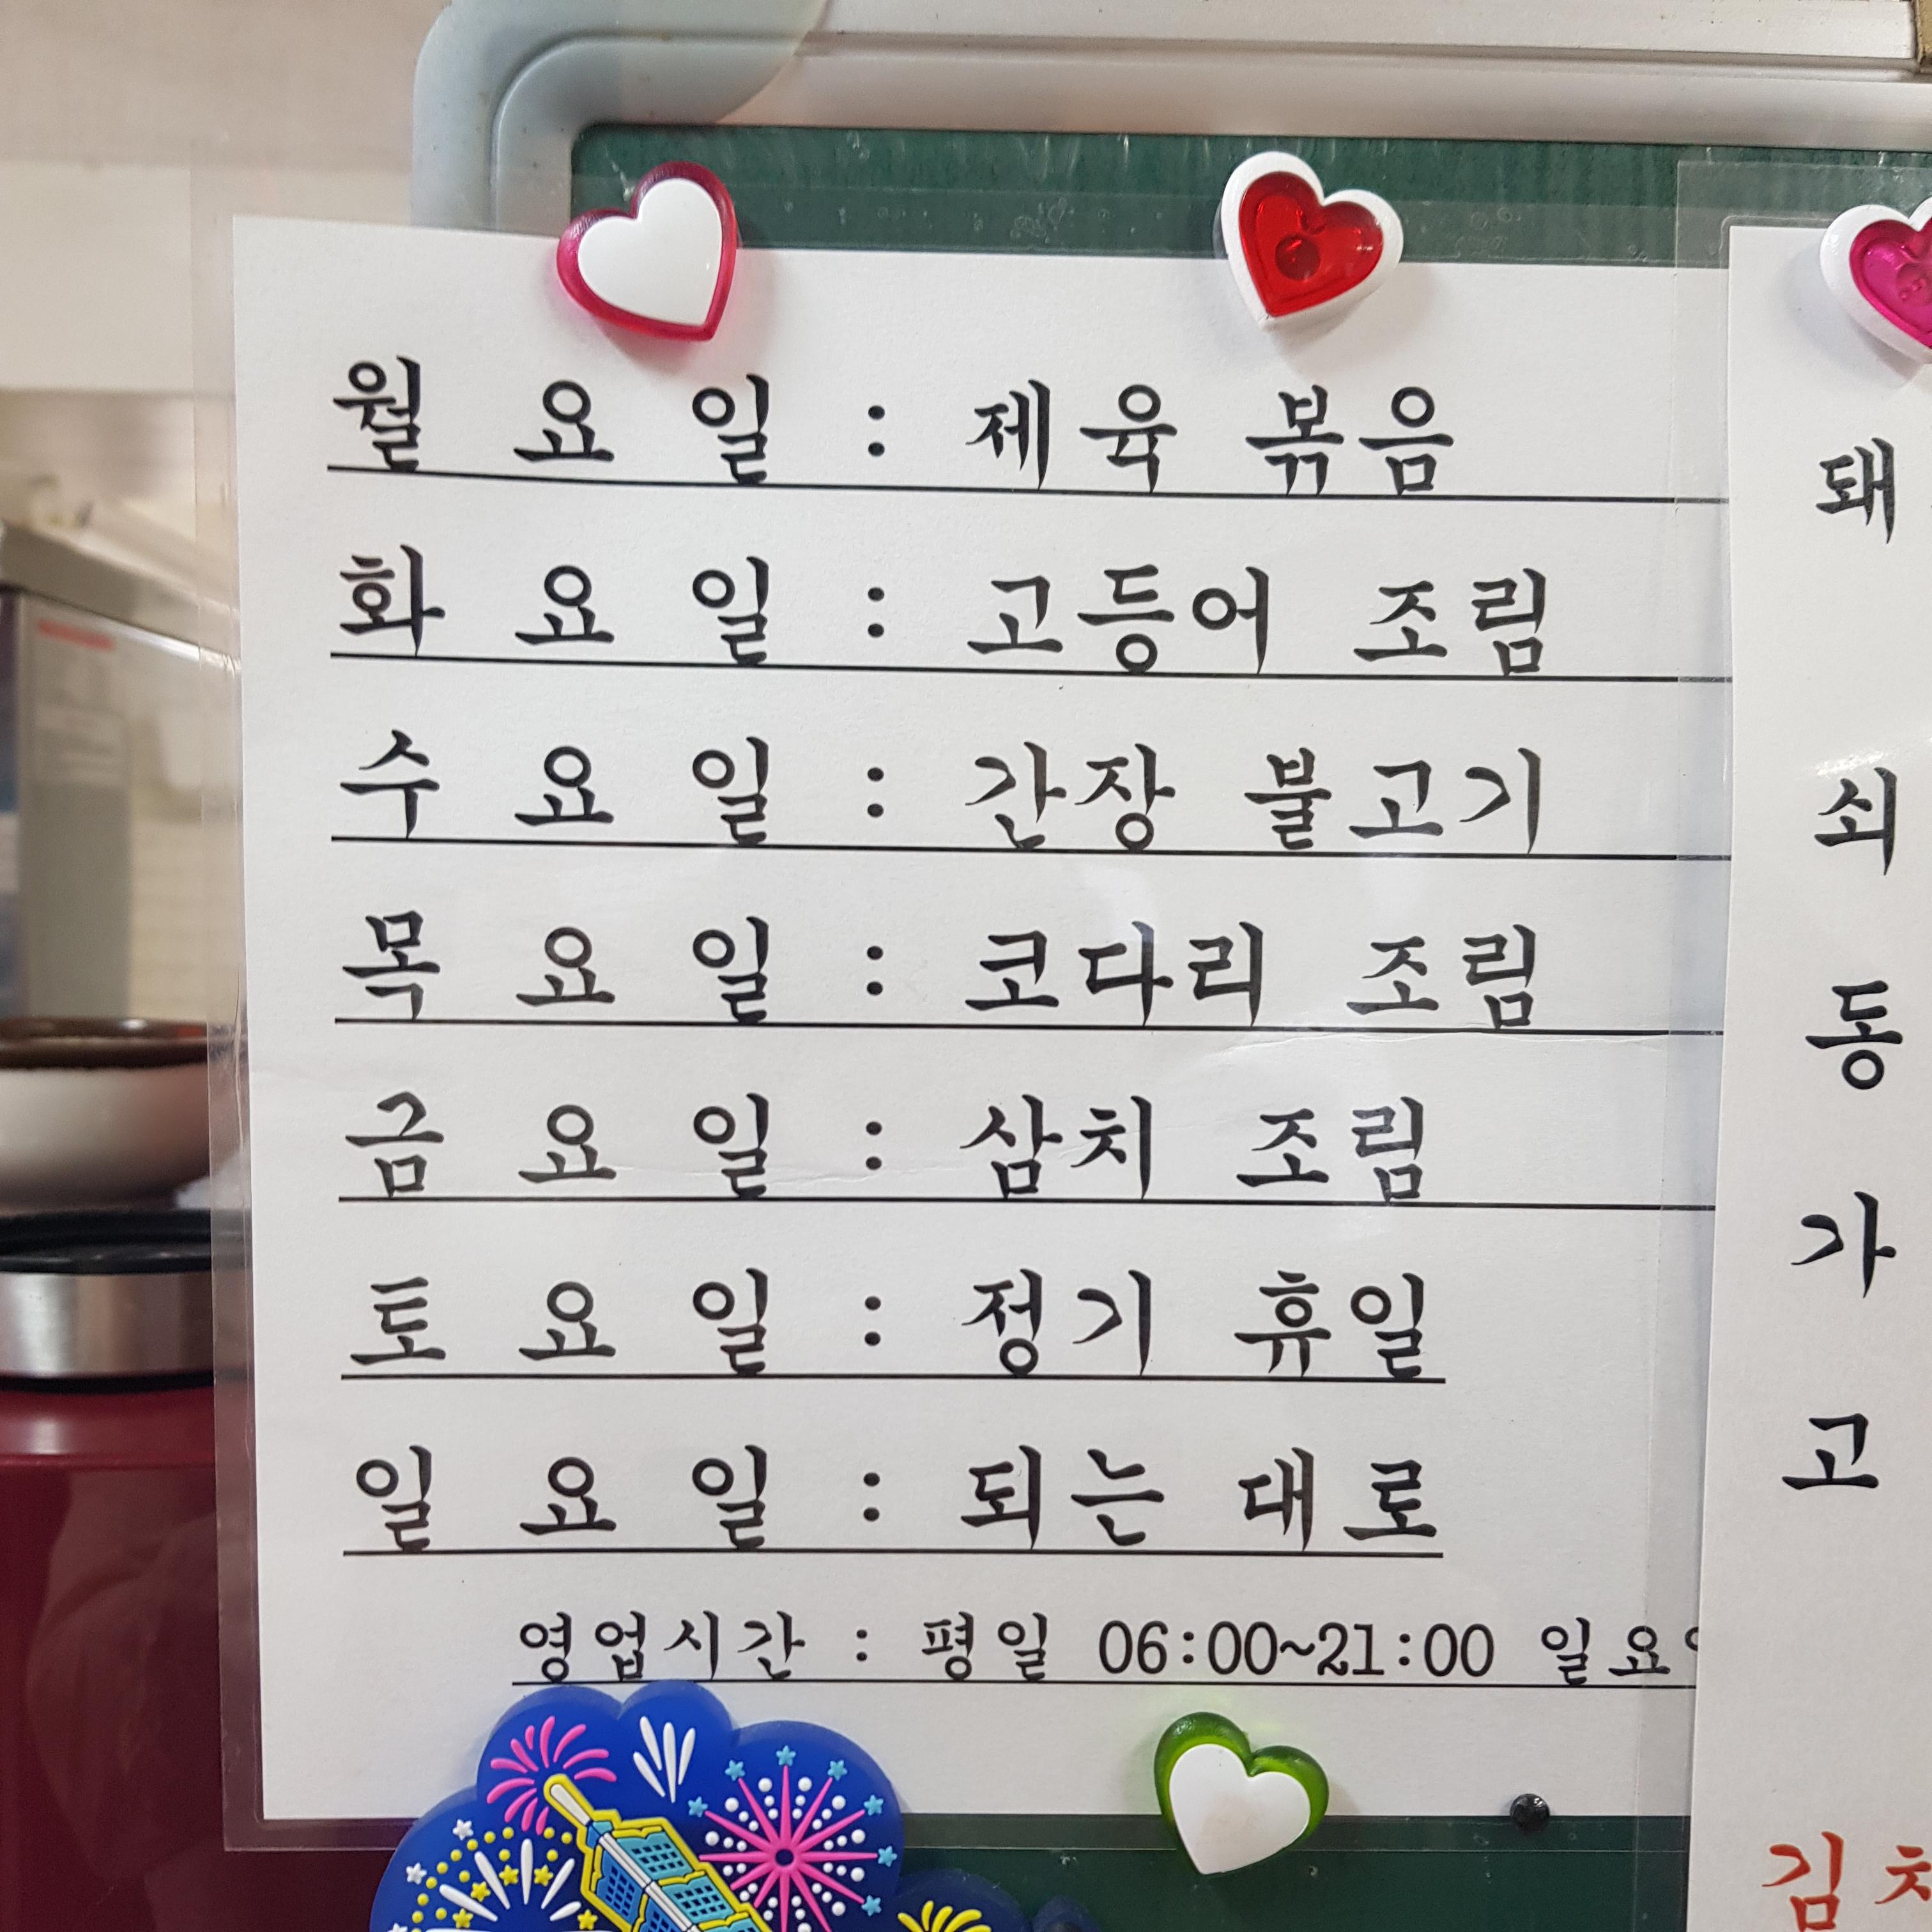 월 요 일 : 제육 볶음
화 요 일 : 고등어 조림
수 요 일 : 간장 불고기
목 요 일 : 코다리 조림
금 요 일 : 삼치 조림
토 요 일 : 정기 휴일
일 요 일 : 되는 대로
영업시간 : 평일 06:00~21:00 일요
돼
쇠
동
가
고
김치